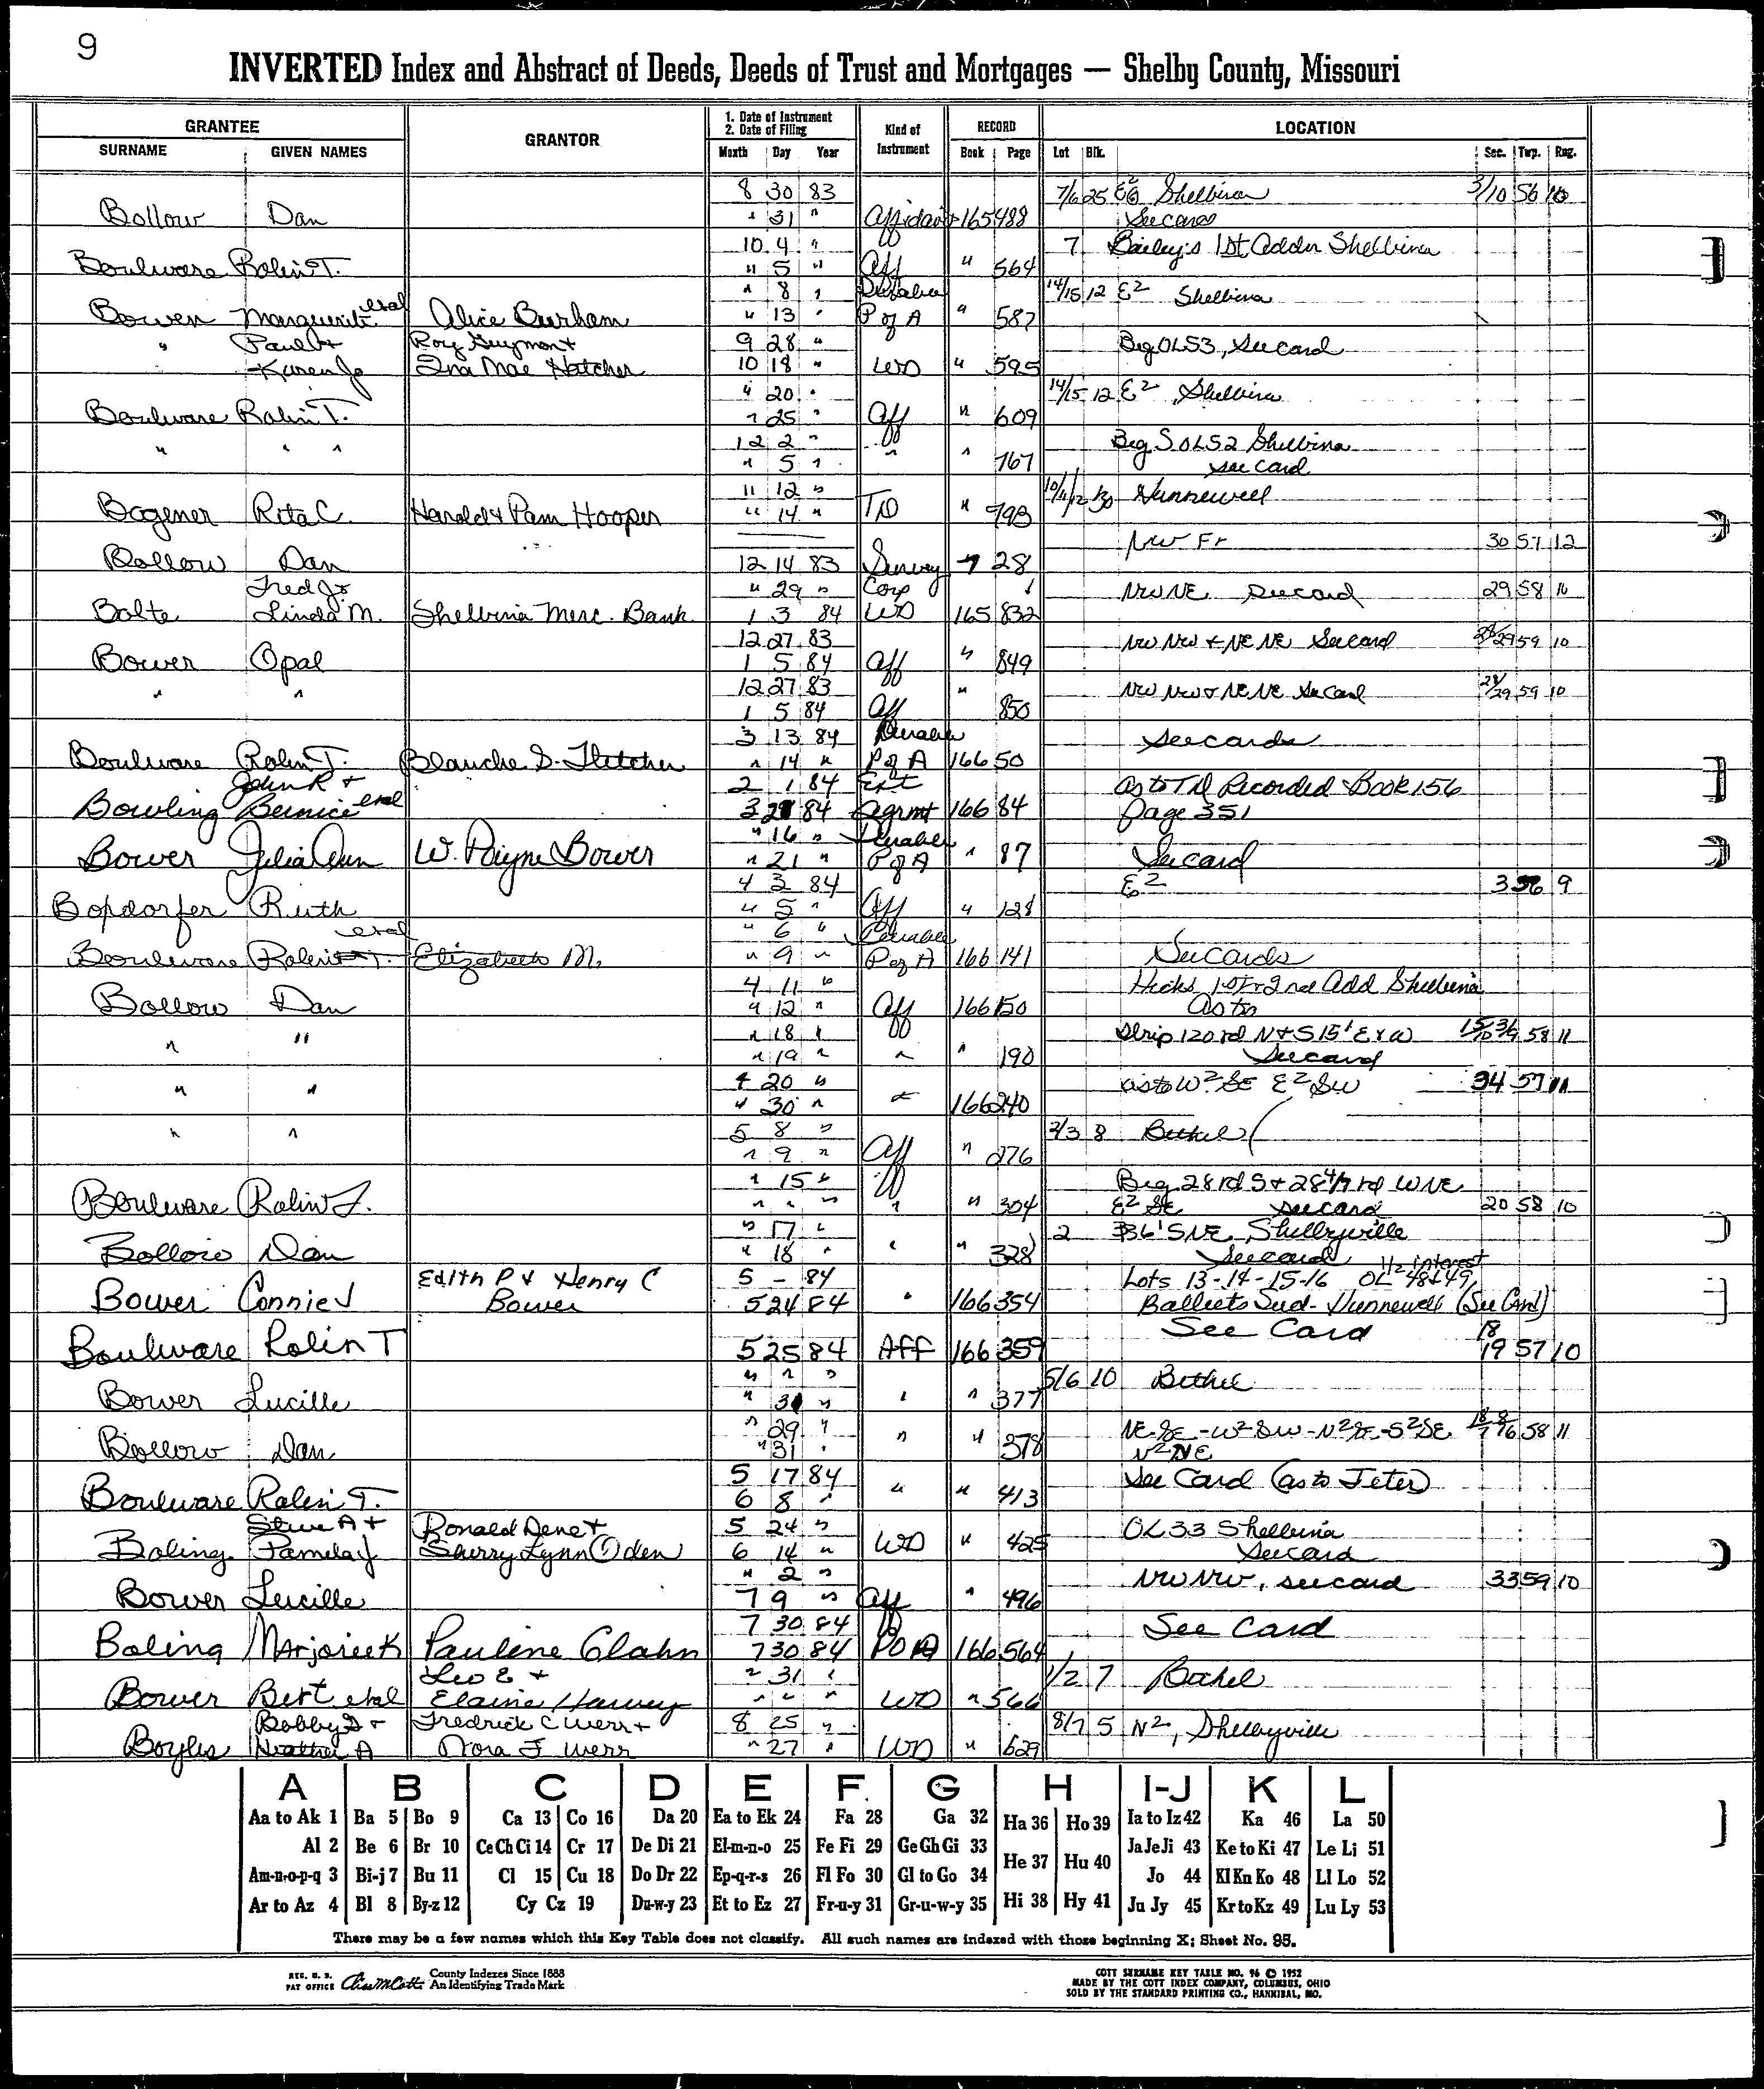 9
INVERTED Index and Abstract of Deeds, Deeds of Trust and Mortgages — Shelby County, Missouri
GRANTEE GRANTOR 1. Date of Instrument 2. Date of Filing Kind of Instrument RECORD LOCATION
SURNAME GIVEN NAMES Month Day Year Book Page Lot Blk. Sec. Twp. Rng.
8 30 83 7/6 25 Shelbina 3/10 56 10
Bollow Dan " 31 " Affidavit 165 488 See card
10 4 " 7 Bailey's 1st Addn Shelbina
Boulware Rolin T. " 5 " Aff " 564
" 8 " Durable 14/15 12 E2 Shelbina
Bowen Marguerite etal Alice Burham " 13 " P of A " 587
" Paul & Roy Guymon & 9 28 " Beg OL53, See card
Karen Jo Ina Mae Hatcher 10 18 " WD " 595
" 20 " 14/15 12 E2 Shelbina
Boulware Rolin T. " 25 " Aff " 609
12 2 " Beg S OL52 Shelbina
" " " " 5 " " " 767 see card
11 12 " 10/11/12 30 Hunnewell
Bogener Rita C. Harold & Pam Hooper " 14 " TD " 793
NW Fr 30 57 12
Bollow Dan 12 14 83 Survey 7 28
Fred Jr " 29 " Corp NW NE See card 29 58 10
Bolte Linda M. Shelbina Merc. Bank 1 3 84 WD 165 832
12 27 83 NW NW & NE NE See card 28/29 59 10
Bower Opal 1 5 84 Aff " 849
12 27 83 " NW NW & NE NE See Card 28/29 59 10
" " 1 5 84 Aff 850
3 13 84 Durable See cards
Boulware Rolin T. Blanche S. Fletcher " 14 " P of A 166 50
John R & 2 1 84 Ext As to TD Recorded Book 156
Bowling Bernice etal 3 21 84 Agrmt 166 84 Page 351
" 16 " Durable
Bower Julia Ann W. Payne Bower " 21 " P of A " 87 See card
4 3 84 E2 3 56 9
Bopdorfer Ruth " 5 " Aff " 128
etal " 6 " Durable
Boulware Rolin T. Elizabeth M. " 9 " P of A 166 141 See Cards
4 11 " Hicks 1st & 2nd Add Shelbina
Bollow Dan " 12 " Aff 166 150 As to
" 18 " Strip 120 rd N & S 15' E & W 58 11
" " " 19 " " " 190 See card
4 20 " as to W2 SE E2 SW 34 57 11
" " " 30 " " 166 240
5 8 " 2/3 8 Bethel
" " " 9 " Aff " 276
" 15 " Beg 28 rd S & 28 4/7 rd W NE
Boulware Rolin T. " " " " " 304 E2 SE See card 20 58 10
" 17 " 2 36' S NE Shelbyville
Bollow Dan " 18 " " " 328 See card
Edith P & Henry C 5 - 84 Lots 13-14-15-16 OL 48 & 49 1/2 interest
Bower Connie J Bower 5 24 84 " 166 354 Balliets Sud - Hunnewell (See Card)
See Card 18
Boulware Rolin T 5 25 84 Aff 166 359 19 57 10
" " " 5/6 10 Bethel
Bower Lucille " 31 " " " 377
" 29 " NE SE - W2 SW - N2 SE - S2 SE 58 11
Bollow Dan " 31 " " " 378 N2 NE
5 17 84 See Card (as to Jeter)
Boulware Rolin T. 6 8 " " " 413
Steve A & Ronald Dene & 5 24 " OL 33 Shelbina
Boling Pamela J Sherry Lynn Oden 6 14 " WD " 425 See card
" 2 " NW NW, see card 33 59 10
Bower Lucille 7 9 " Aff " 496
7 30 84 See Card
Boling Marjorie K Pauline Clahn 7 30 84 POA 166 564
Leo E & " 31 " 1/2 7 Bethel
Bower Bert etal Elaine Harvey " " " WD " 566
Bobby D & Fredrick C Werr & 8 25 " 8/7 5 N2, Shelbyville
Boyles Heather A Nora F Werr " 27 " WD " 629
A B C D E F. G H I-J K L
Aa to Ak 1 Ba 5 Bo 9 Ca 13 Co 16 Da 20 Ea to Ek 24 Fa 28 Ga 32 Ha 36 Ho 39 Ia to Iz 42 Ka 46 La 50
Al 2 Be 6 Br 10 Ce Ch Ci 14 Cr 17 De Di 21 El-m-n-o 25 Fe Fi 29 Ge Gh Gi 33 He 37 Hu 40 Ja Je Ji 43 Ke to Ki 47 Le Li 51
Am-n-o-p-q 3 Bi-j 7 Bu 11 Cl 15 Cu 18 Do Dr 22 Ep-q-r-s 26 Fl Fo 30 Gl to Go 34 Hi 38 Hy 41 Jo 44 Kl Kn Ko 48 Ll Lo 52
Ar to Az 4 Bl 8 By-z 12 Cy Cz 19 Du-w-y 23 Et to Ez 27 Fr-u-y 31 Gr-u-w-y 35 Ju Jy 45 Kr to Kz 49 Lu Ly 53
There may be a few names which this Key Table does not classify. All such names are indexed with those beginning X; Sheet No. 95.
REG. U. S. PAT OFFICE County Indexes Since 1888 An Identifying Trade Mark
COTT SURNAME KEY TABLE NO. 96 © 1952
MADE BY THE COTT INDEX COMPANY, COLUMBUS, OHIO
SOLD BY THE STANDARD PRINTING CO., HANNIBAL, MO.